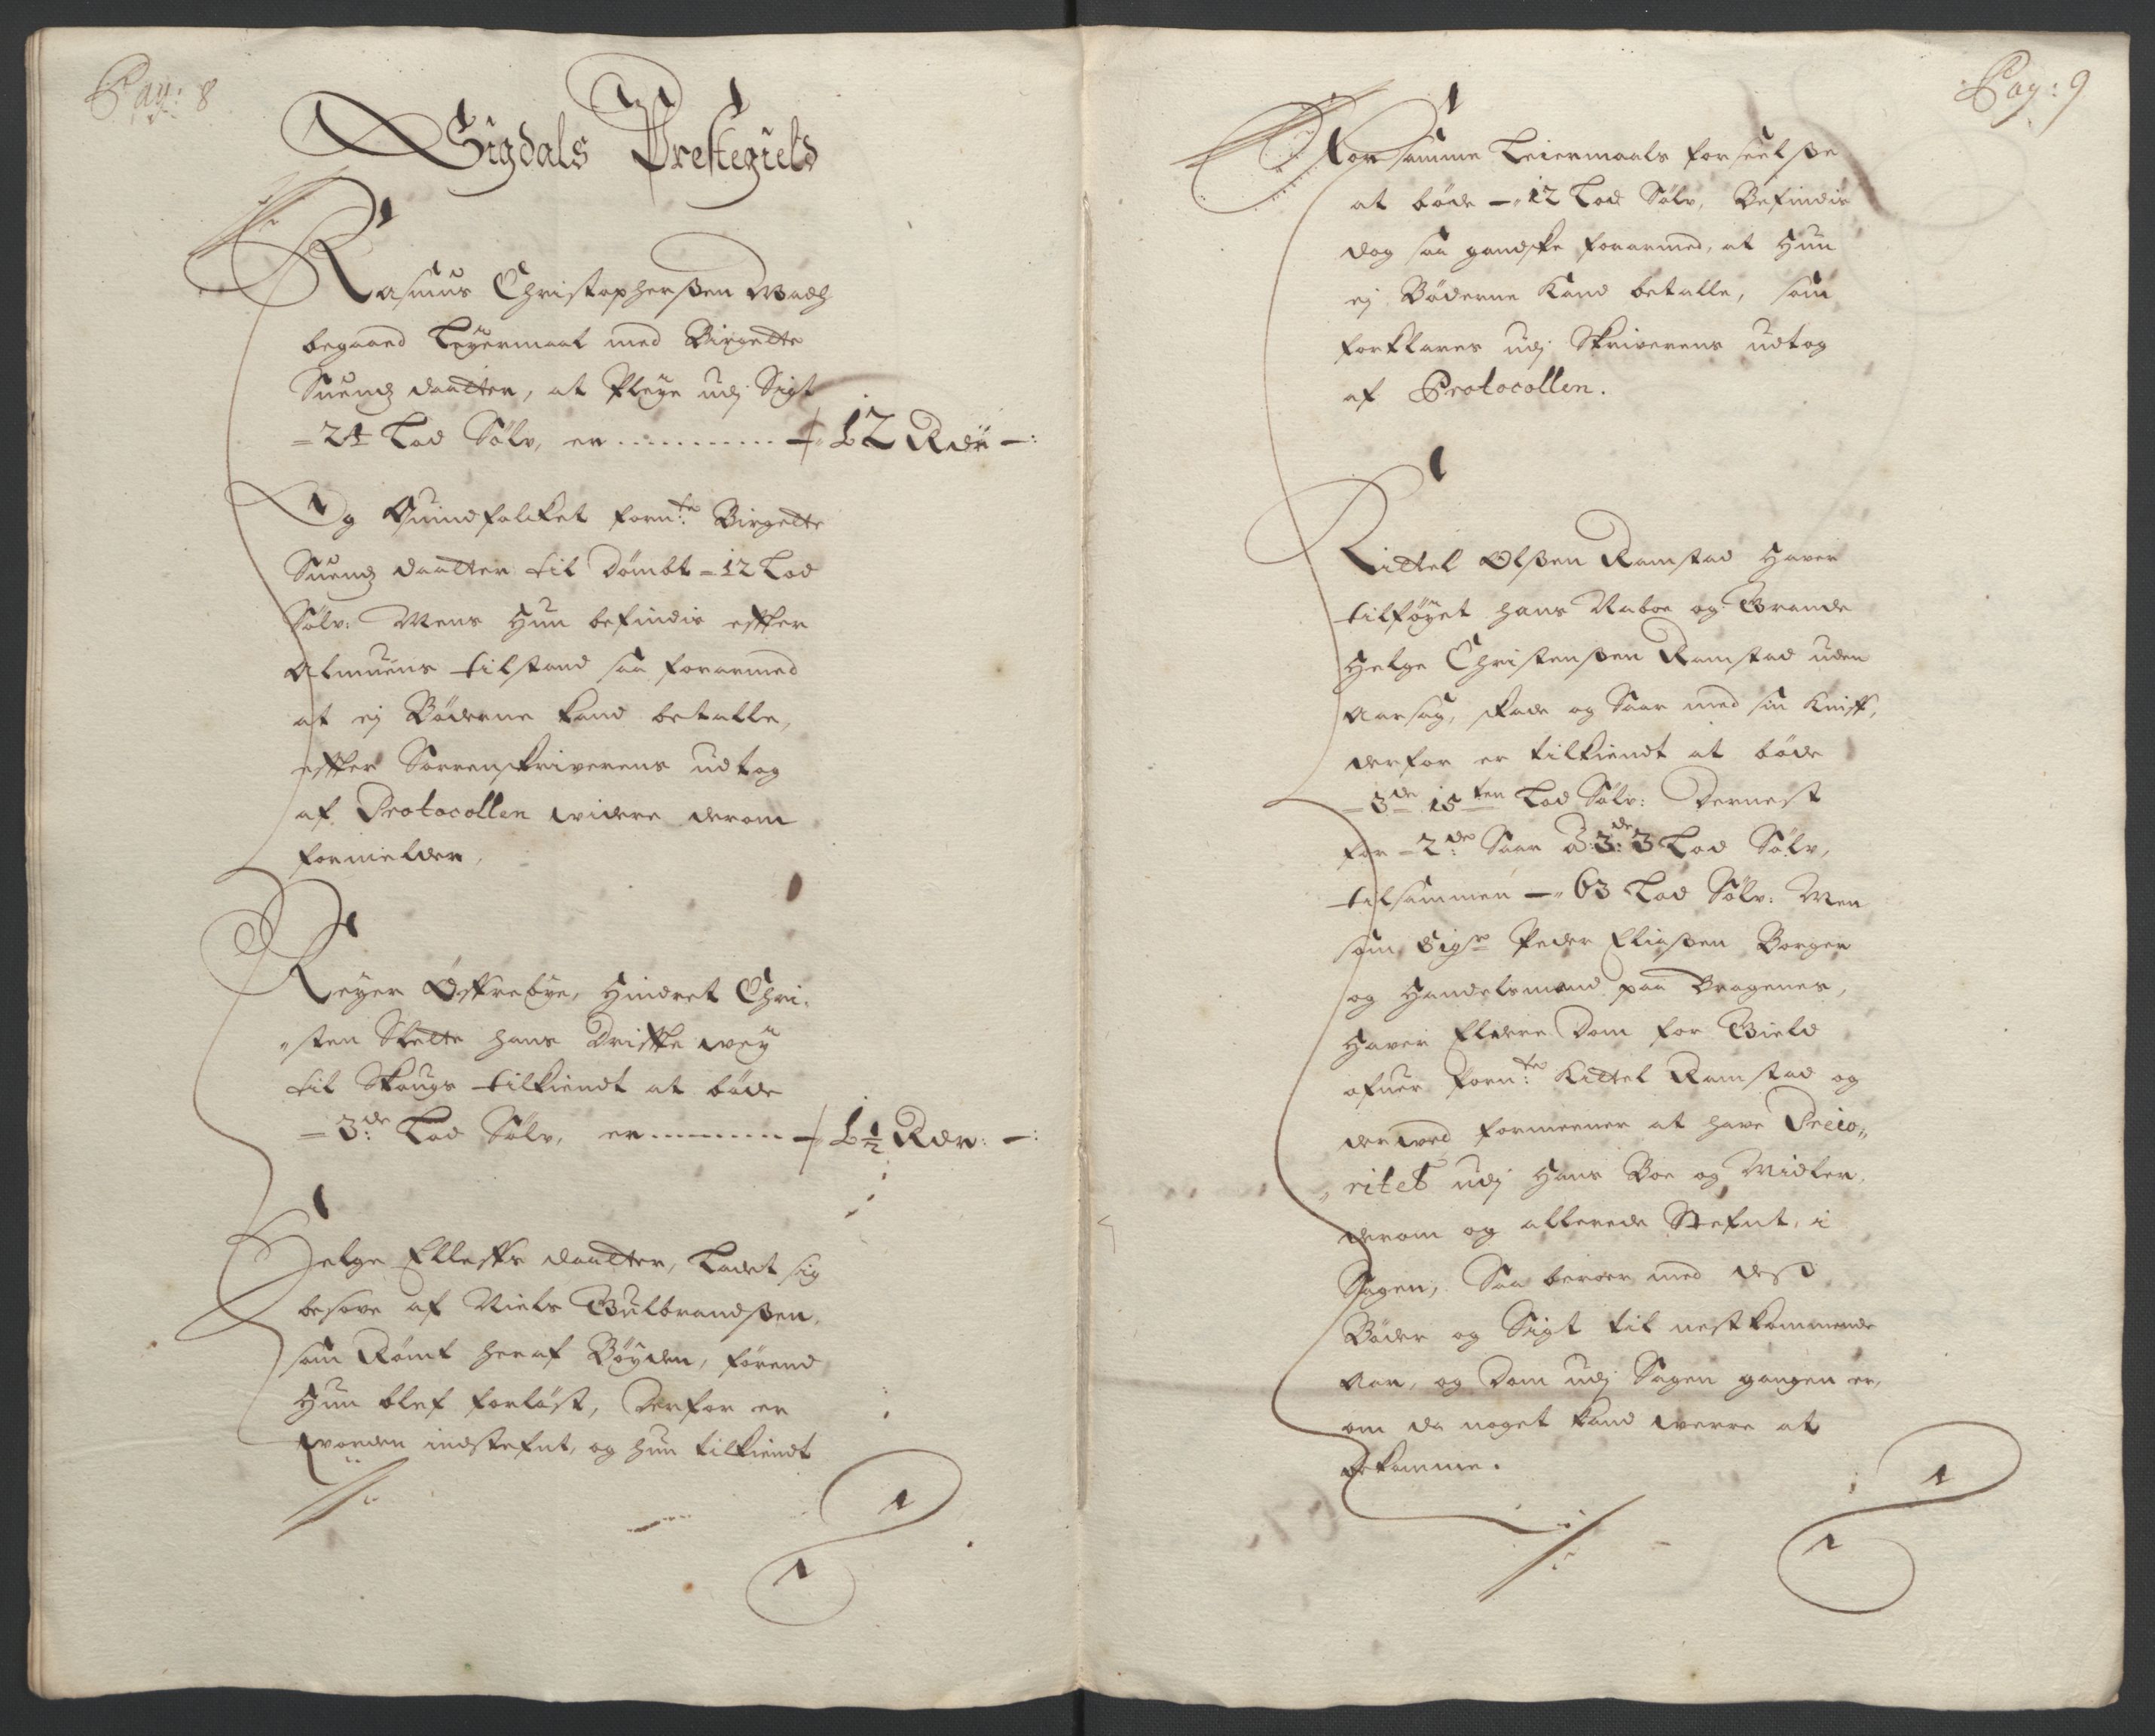 Pag: 8
Sigdals Prestegield
Rasmus Christopherßen
begaaed Leyermaal med Birgette
Suends daatter, at Pleye udj Sigt
= 24 Lod Sölv, er ............ 12 Rdr –:
Og Quindfolcket forn:te Birgette
Suends daatter til Dömbt = 12 Lod
Sölv: Mens Hun befindis effter
Almuens tilstand saa forarmed
at ej Böderne kand betalle,
effter Sorrenskriverens udtog
af Protocollen widere derom
formelder,
Reyer Össtrebye, Hindret Chri-
"sten Skelte hans Driffte weÿ
til Skougs tilkiendt at böde
= 3de: Lod Sölv, er .......... 1½ Rdr: –:
Helge Elleffs daatter, Ladet sig
besove af Niels Gulbrandßen,
som Römt her af Böyden, förend
Hun blef forlöst, Derfor er
worden indstefnt, og hun tilkiendt
Pag: 9
For samme Leiermaals forseelße
at böde – 12 Lod Sölv, Befindis
dog saa gandske forarmed, at Hun
ej Böderne Kand betalle, som
forklares udj Skriverens udtog
af Protocollen.
Kittel Olßen Ramstad Haver
tilföyet hans Naboe og Grande
Helge Christenßen Ramstad uden
Aarsag, skade og Saar med sin Kniff,
derfor er tilkiendt at böde
= 3de 15ten Lod Sölv: Dernest
for – 2de: Saar á 3de: 3 Lod Sölv,
tilsammen – 63 Lod Sölv: Men
som Sigr Peder Eliaßen Borger
og Handelsmand paa Bragenes,
Haver Eldere Dom for Gield
ofver forn:te Kittel Ramstad og
derwed formeener at have Preio,,
,,ritet udj Hans Boe og Midler,
derom og allerede Stefnt, i
Sagen, Saa beroer med deß
Böder og Sigt til nestkommende
Aar, og Dom udj Sagen gangen er,
om da noget kand werre at
bekomme.